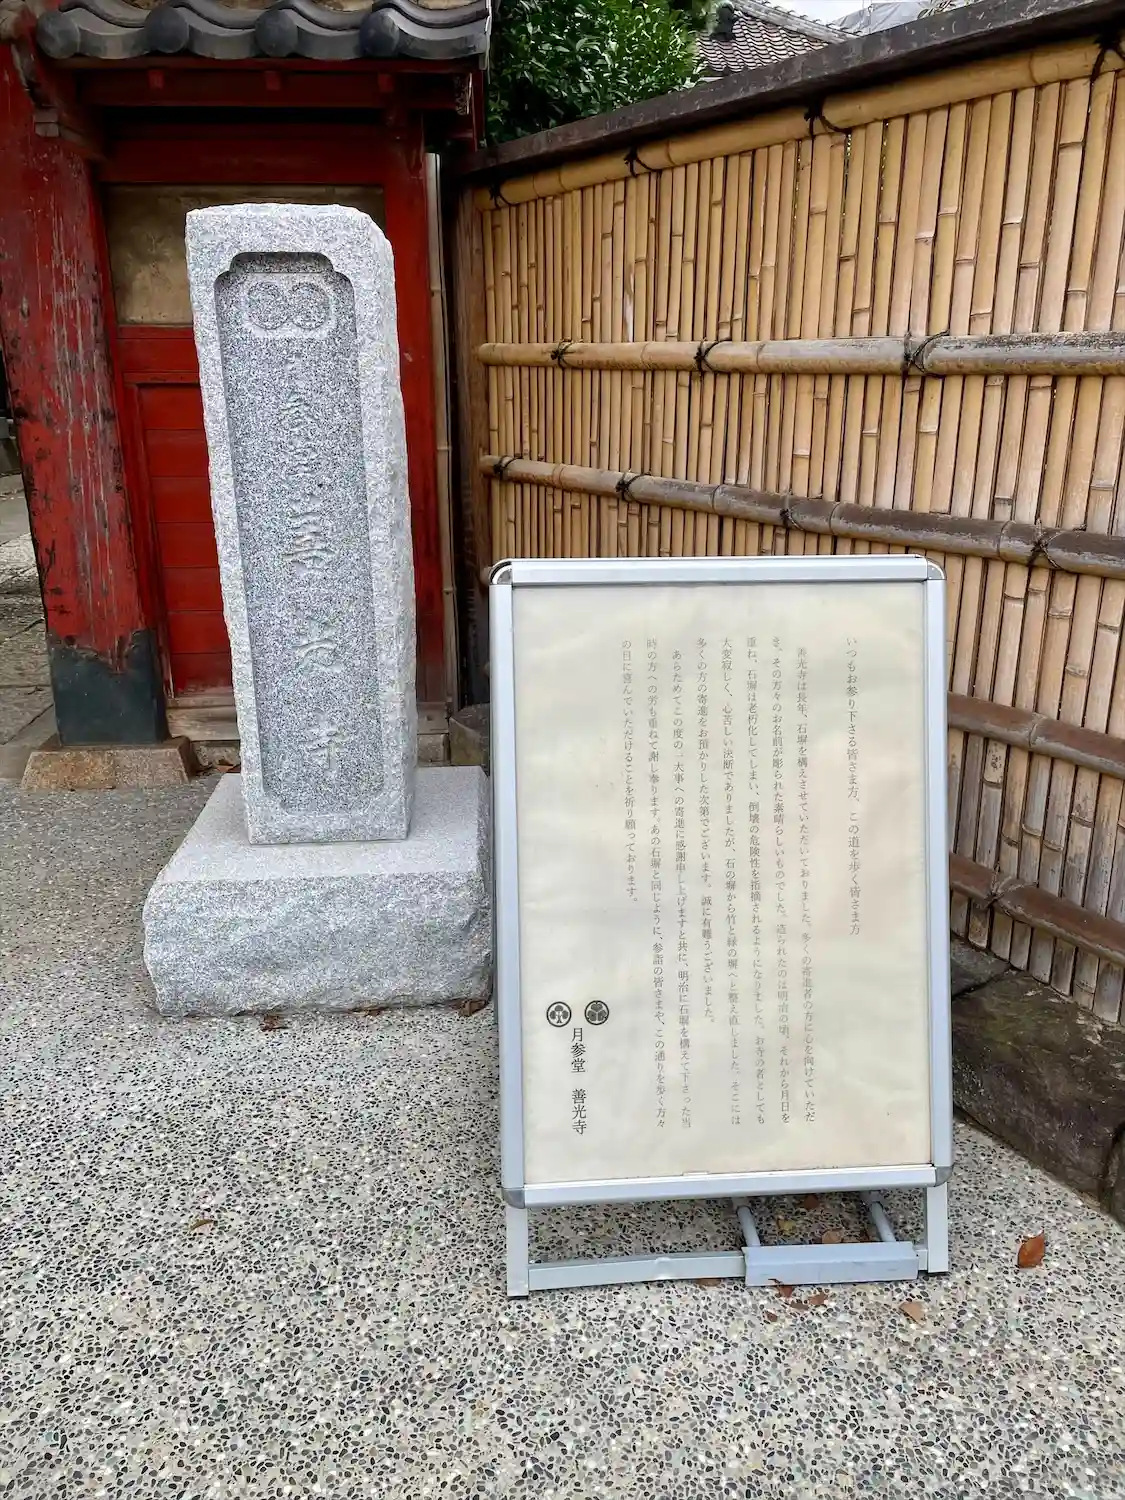 善光寺
いつもお参り下さる皆さま方、この道を歩く皆さま方
善光寺は長年、石塀を構えさせていただいておりました。多くの寄進者の方に心を向けていただ
き、その方々のお名前が彫られた素晴らしいものでした。造られたのは明治の頃。それから月日を
重ね、石塀は老朽化してしまい、倒壊の危険性を指摘されるようになりました。お寺の者としても
大変寂しく、心苦しい決断でありましたが、石の塀から竹と緑の塀へと整え直しました。そこには
多くの方の寄進をお預かりした次第でございます。誠に有難うございました。
あらためてこの度の一大事への寄進に感謝申し上げますと共に、明治に石塀を構えて下さった当
時の方への労も重ねて謝し奉ります。あの石塀と同じように、参詣の皆さまや、この通りを歩く方々
の目に喜んでいただけることを祈り願っております。
月参堂 善光寺